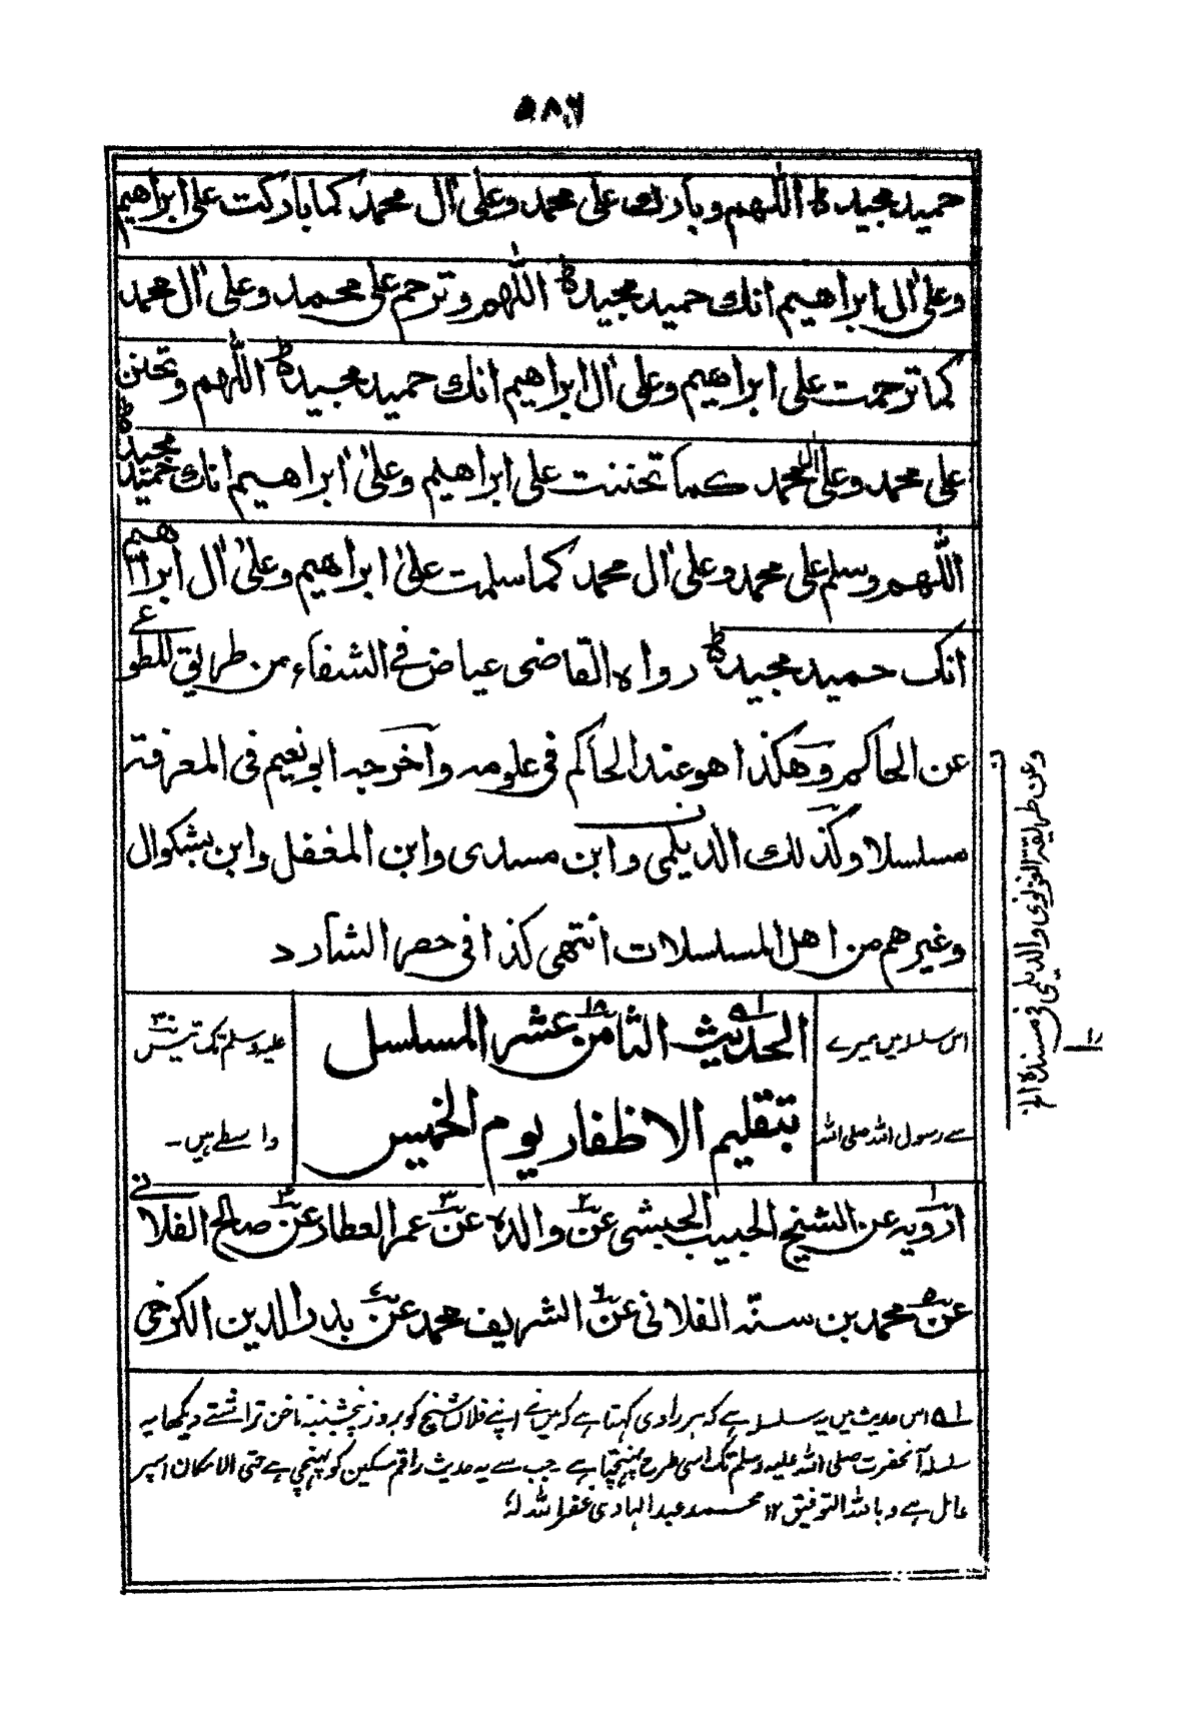 ۵۸۶
حميد مجيد اللهم وبارك على محمد وعلى ال محمد كما باركت على ابراهيم
وعلى ال ابراهيم انك حميد مجيد اللهم وترحم على محمد وعلى ال محمد
كما ترحمت على ابراهيم وعلى ال ابراهيم انك حميد مجيد اللهم وتحنن
على محمد وعلى ال محمد كما تحننت على ابراهيم وعلى ال ابراهيم انك حميد مجيد
اللهم وسلم على محمد وعلى ال محمد كما سلمت على ابراهيم وعلى ال ابراهيم
انك حميد مجيد رواه القاضى عياض فى الشفاء من طريق المطوعى
عن الحاكم وهكذا هو عند الحاكم فى علومه واخرجه ابو نعيم فى المعرفة
مسلسلا وكذلك الديلمى وابن مسدى وابن المغفل وابن بشكوال
وغيرهم من اهل المسلسلات انتهى كذا فى حصر الشارد
وعن طريقة الغزنوى والديلمى فى مسنده الخ
الحديث الثامن عشر المسلسل
بتقليم الاظفار يوم الخميس
اس سلسلہ میں میرے
سے رسول اللہ صلی اللہ
علیہ وسلم تک تیئیس
واسطے ہیں۔
ارويه عن الشيخ الحبيب الحبشى عن والده عن عمر العطار عن صالح الفلانى
عن محمد بن سنة الفلانى عن الشريف محمد عن بدر الدين الكرخى
۱ اس حدیث میں یہ سلسلہ ہے کہ ہر راوی کہتا ہے کہ میں نے اپنے فلاں شیخ کو بروز پنجشنبہ ناخن تراشتے دیکھا یہ
سلسلہ آنحضرت صلی اللہ علیہ وسلم تک اسی طرح پہنچتا ہے۔ جب سے یہ حدیث راقم مسکین کو پہنچی ہے حتی الامکان اسپر
عامل ہے وباللہ التوفیق ۱۲ محمد عبد الہادی غفر اللہ لہ